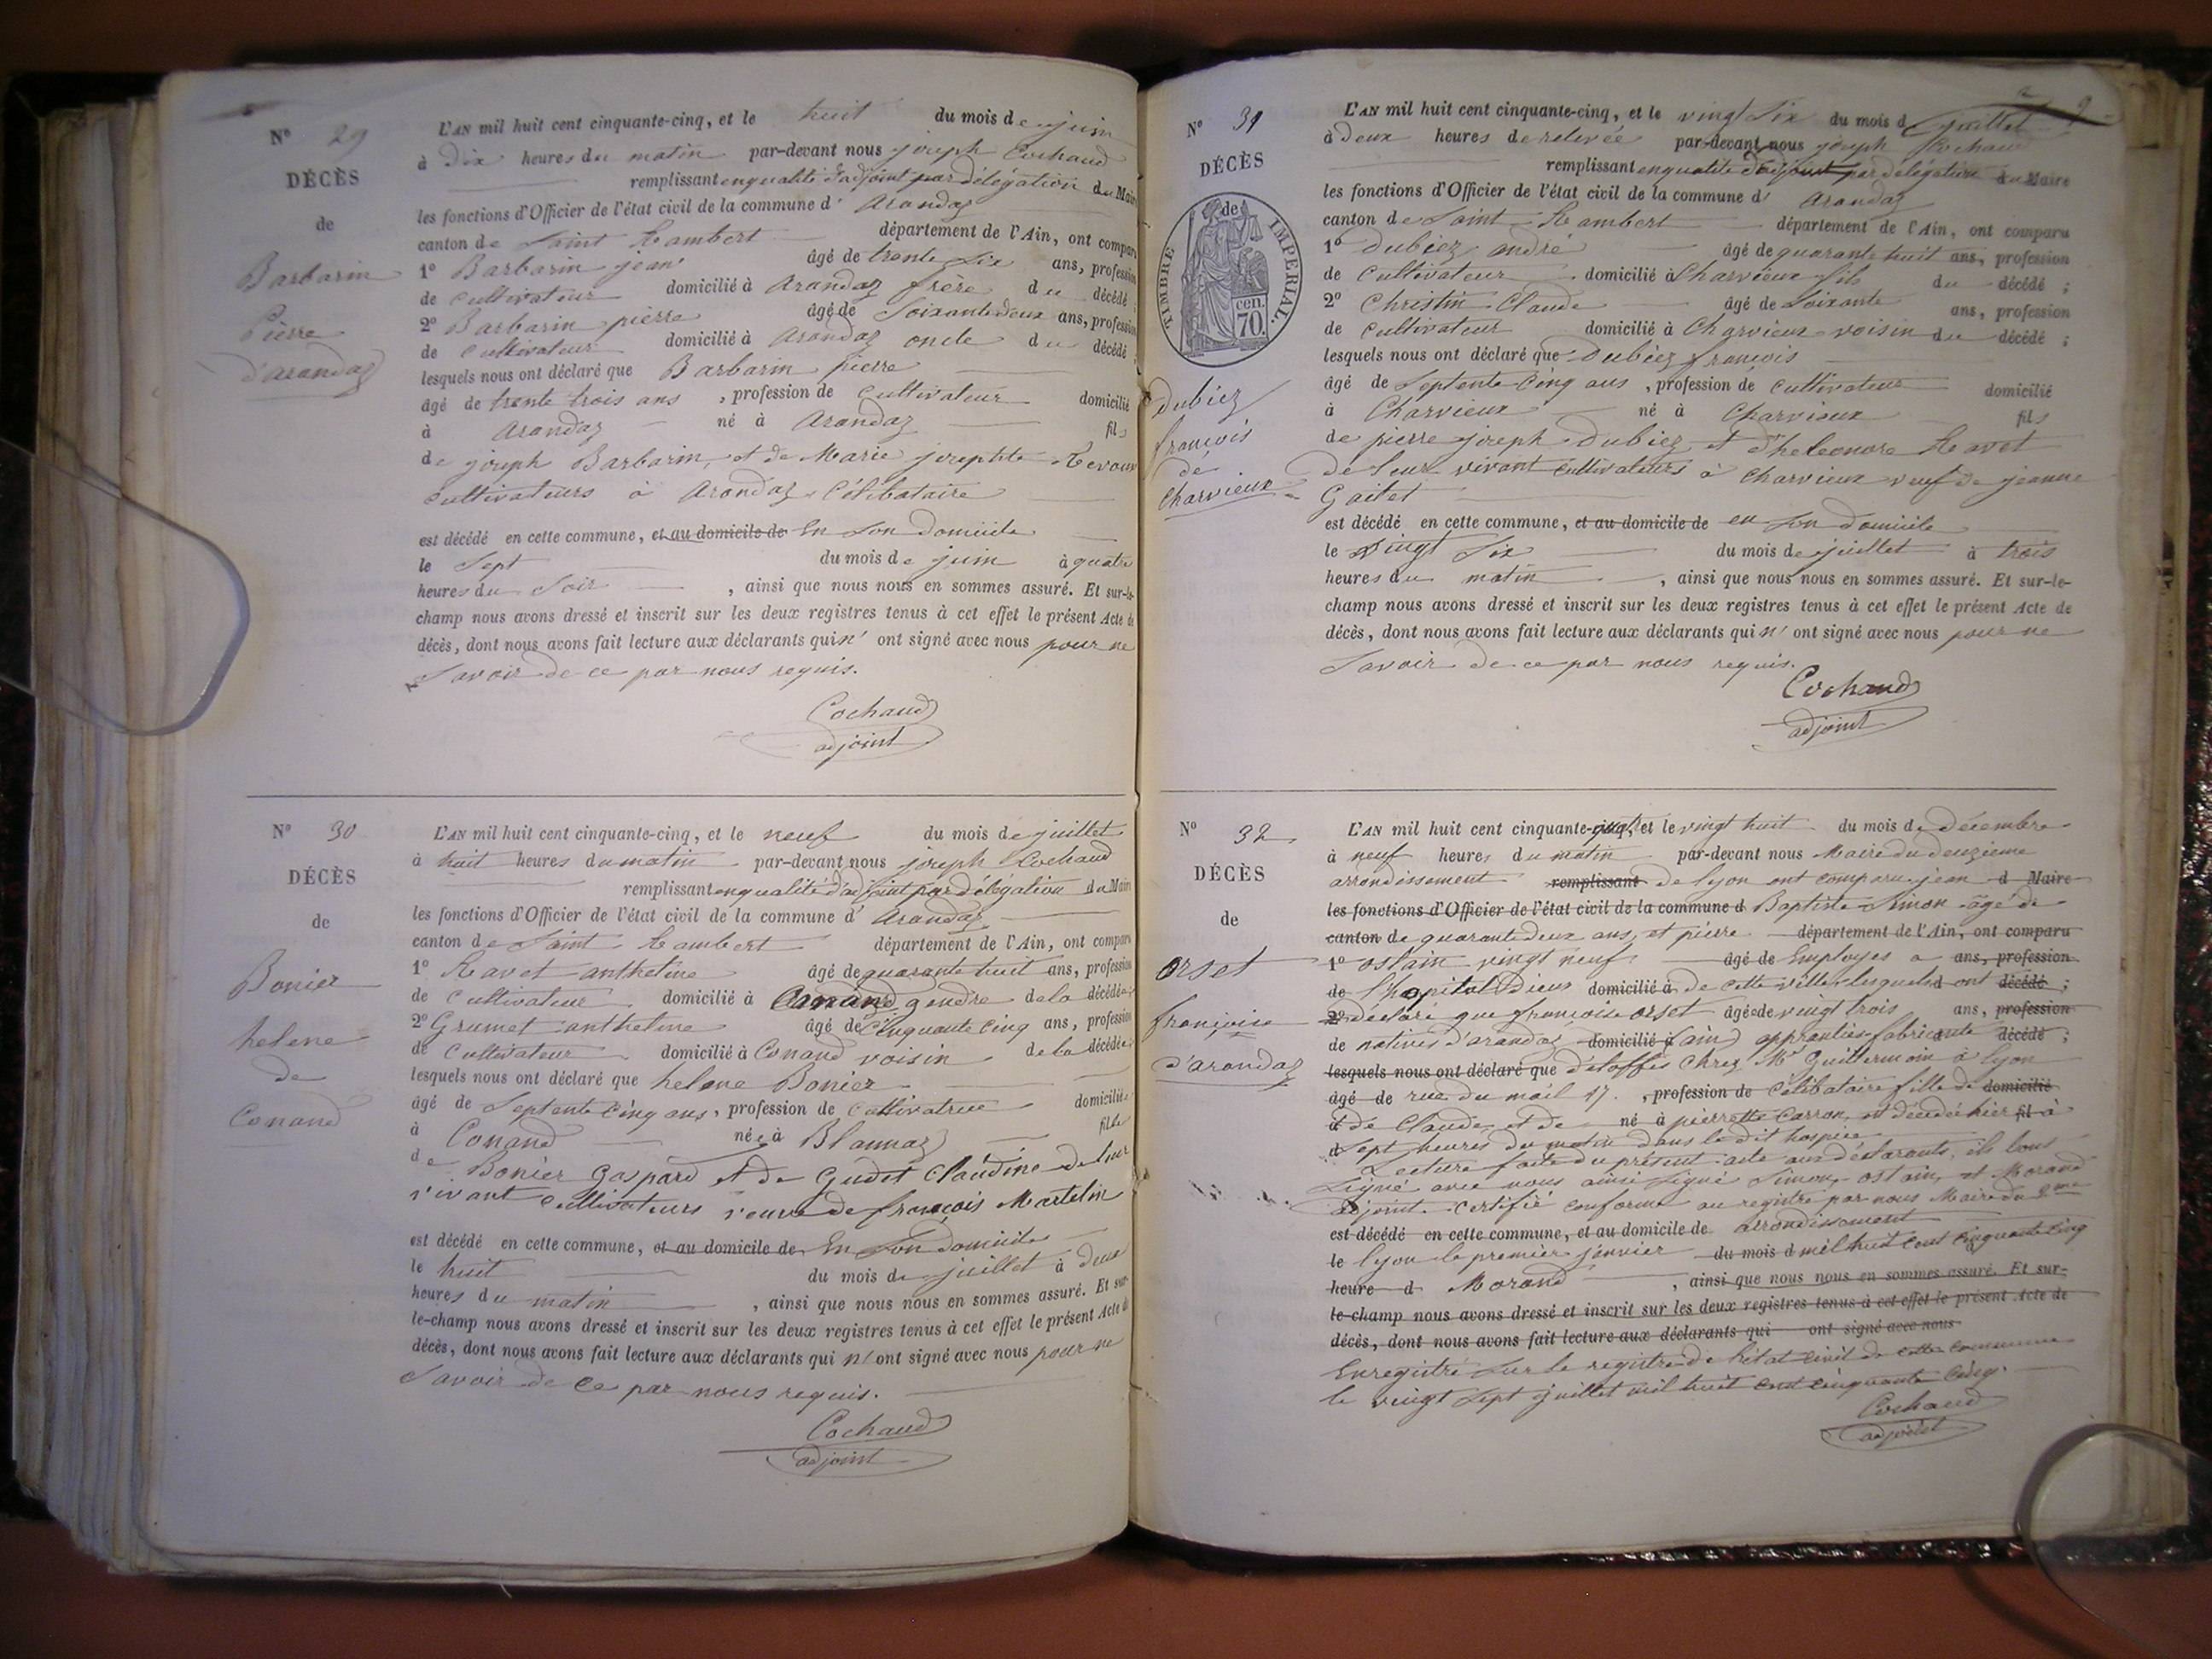 N° 29
DÉCÈS
de
Barbarin
Pierre
d'arandaz
L'AN mil huit cent cinquante-cinq, et le huit du mois de juin
à Dix heures du matin par-devant nous joseph Cochaud
remplissant en qualité d'adjoint par délégation du Maire
les fonctions d'Officier de l'état civil de la commune d' Arandaz
canton de Saint Rambert département de l'Ain, ont comparu
1° Barbarin jean âgé de trente six ans, profession
de Cultivateur domicilié à Arandaz frère du décédé ;
2° Barbarin pierre âgé de Soixante deux ans, profession
de Cultivateur domicilié à Arandaz oncle du décédé ;
lesquels nous ont déclaré que Barbarin pierre
âgé de trente trois ans , profession de Cultivateur domicilié
à Arandaz né à Arandaz fils
de joseph Barbarin, et de Marie josephte
Cultivateurs à Arandaz Célibataire
est décédé en cette commune, et au domicile de En Son Domicile
le Sept du mois de juin à quatre
heures du Soir , ainsi que nous nous en sommes assuré. Et sur-le-
champ nous avons dressé et inscrit sur les deux registres tenus à cet effet le présent Acte de
décès, dont nous avons fait lecture aux déclarants qui n' ont signé avec nous pour ne
Savoir de ce par nous requis.
Cochaud
adjoint
N° 30
DÉCÈS
de
Bonier
helene
de
Conand
L'AN mil huit cent cinquante-cinq, et le neuf du mois de juillet
à huit heures du matin par-devant nous joseph Cochaud
remplissant en qualité d'adjoint par délégation du Maire
les fonctions d'Officier de l'état civil de la commune d' Arandaz
canton de Saint Rambert département de l'Ain, ont comparu
1° Ravet anthelme âgé de quarante huit ans, profession
de Cultivateur domicilié à Conand gendre de la décédée
2° Grumet anthelme âgé de Cinquante Cinq ans, profession
de Cultivateur domicilié à Conand voisin de la décédée
lesquels nous ont déclaré que helene Bonier
âgé de Septente Cinq ans, profession de Cultivatrice domiciliée
à Conand née à Blannaz fille
de Bonier Gaspard et de Gudet Claudine de leur
vivant Cultivateurs veuve de françois Martelin
est décédé en cette commune, et au domicile de En Son Domicile
le huit du mois de juillet à deux
heures du matin , ainsi que nous nous en sommes assuré. Et sur-
le-champ nous avons dressé et inscrit sur les deux registres tenus à cet effet le présent Acte de
décès, dont nous avons fait lecture aux déclarants qui n' ont signé avec nous pour ne
Savoir de ce par nous requis.
Cochaud
adjoint
9
N° 31
DÉCÈS
de
TIMBRE IMPERIAL
cen.
70.
Dubiez
françois
de
Charvieux
L'AN mil huit cent cinquante-cinq, et le vingt Six du mois d juillet
à deux heures de relevée par-devant nous joseph Cochaud
remplissant en qualité d'adjoint par délégation du Maire
les fonctions d'Officier de l'état civil de la commune d' Arandaz
canton de Saint Rambert département de l'Ain, ont comparu
1° Dubiez andré âgé de quarante huit ans, profession
de Cultivateur domicilié à Charvieux fils du décédé ;
2° Christin Claude âgé de Soixante ans, profession
de Cultivateur domicilié à Charvieux voisin du décédé ;
lesquels nous ont déclaré que Dubiez françois
âgé de Septente Cinq ans , profession de Cultivateur domicilié
à Charvieux né à Charvieux fils
de pierre joseph Dubiez et d'heleonore Ravet
de leur vivant Cultivateurs à Charvieux veuf de jeanne
Gaitet
est décédé en cette commune, et au domicile de en Son Domicile
le Vingt Six du mois de juillet à trois
heures du matin , ainsi que nous nous en sommes assuré. Et sur-le-
champ nous avons dressé et inscrit sur les deux registres tenus à cet effet le présent Acte de
décès, dont nous avons fait lecture aux déclarants qui n' ont signé avec nous pour ne
Savoir de ce par nous requis.
Cochaud
adjoint
N° 32
DÉCÈS
de
Orset
françoise
d'arandaz
L'AN mil huit cent cinquante-quatre, et le vingt huit du mois de Décembre
à neuf heures du matin par-devant nous Maire du deuzieme
arrondissement remplissant de lyon ont comparu jean d Maire
les fonctions d'Officier de l'état civil de la commune d Baptiste Simon âgé de
canton de quarante deux ans, et pierre département de l'Ain, ont comparu
1° ostain vingt neuf âgé de Employes a ans, profession
de l'hopital Dieux domicilié à de cette ville lesquels d ont décédé ;
2° declaré que françoise orset âgée de vingt trois ans, profession
de natives d'arandaz domicilié à (ain) apprentie fabricante décédé ;
lesquels nous ont déclaré que d'etoffes Chez Mr Guillermoin à lyon
âgé de rue du mail 17. , profession de Célibataire fille de domicilié
à de Claude et de né à pierrette Carron, est décédée hier fil à
d Sept heures du matin dans le dit hospice
Lecture faite du présent acte aux déclarants, ils l'ont
Signé avec nous ainsi signé Simon, ostain, et Morand
adjoint. Certifié conforme au registre par nous Maire du 2me
est décédé en cette commune, et au domicile de arrondissement
le lyon le premier janvier du mois d mil huit cent cinquante cinq
heure d Morand , ainsi que nous nous en sommes assuré. Et sur-
le-champ nous avons dressé et inscrit sur les deux registres tenus à cet effet le présent Acte de
décès, dont nous avons fait lecture aux déclarants qui ont signé avec nous
Enregistré sur le registre de l'état civil de cette commune
le vingt Sept juillet mil huit cent cinquante cinq.
Cochaud
adjoint